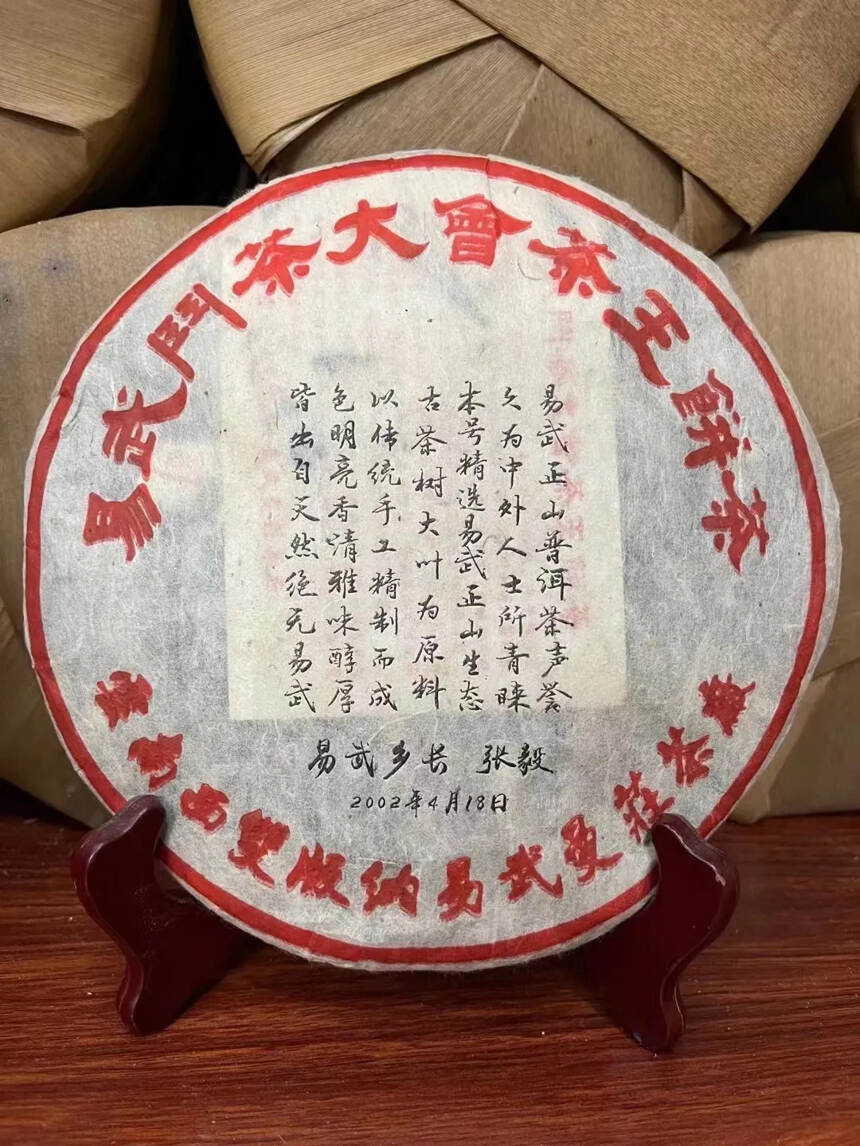 易武鬥茶大會茶王餅茶
易武正山普洱茶声誉
久为中外人士所青睐
本号精选易武正山生态
古茶树大叶为原料
以传统手工精制而成
色明亮香清雅味醇厚
皆出自天然绝无易武
易武乡长 张毅
2002年4月18日
雲南西雙版納易武曼莊茶